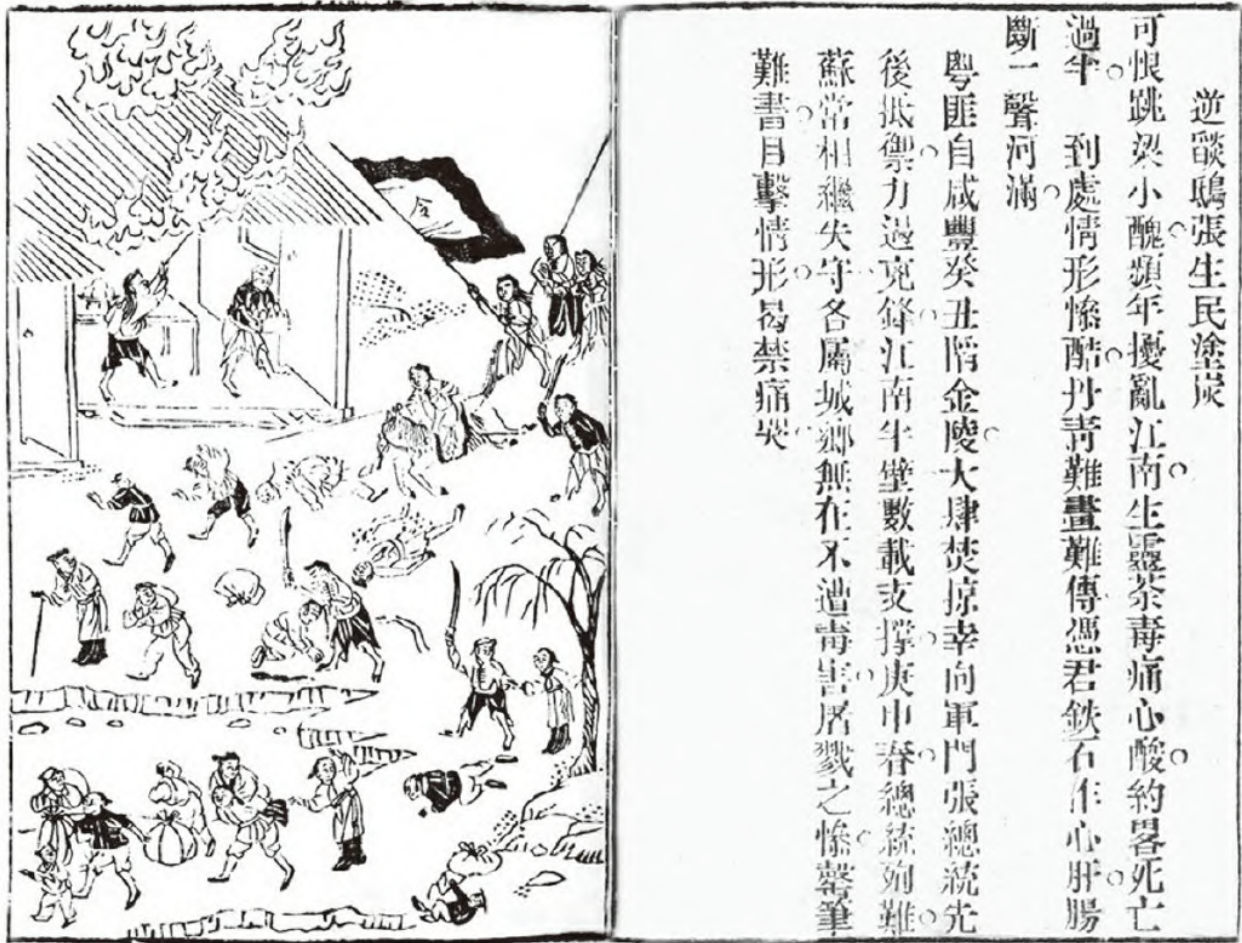 逆燄鴟張生民塗炭
可恨跳梁小醜頻年擾亂江南生靈荼毒痛心酸約畧死亡
過半　到處情形慘酷丹青難畫難傳憑君鉄石作心肝腸
斷一聲河滿
粤匪自咸豐癸丑陷金陵大肆焚掠幸向軍門張總統先
後抵禦力遏克鋒江南半壁數載支撐庚申春總統殉難
蘇常相繼失守各屬城鄉無在不遭毒害屠戮之慘罄筆
難書目擊情形曷禁痛哭
令